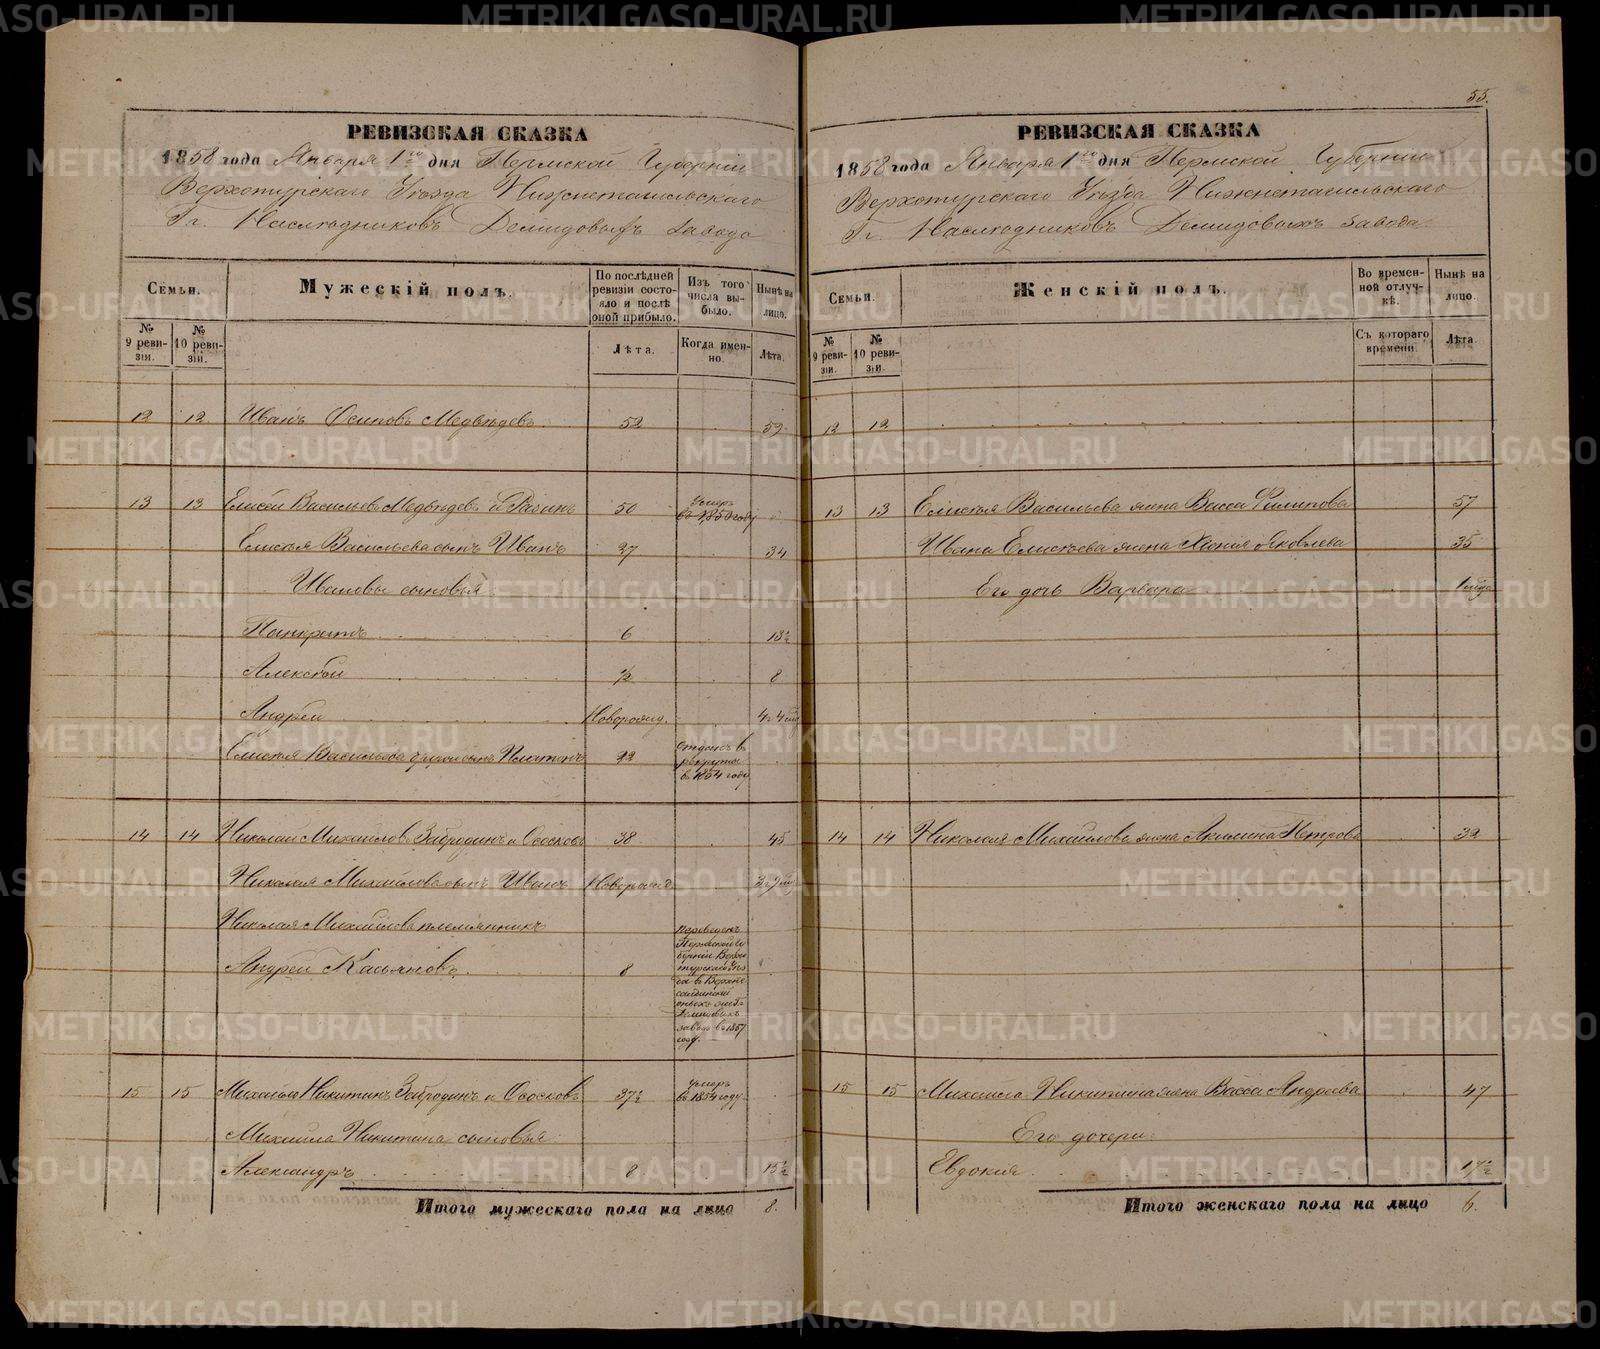 РЕВИЗСКАЯ СКАЗКА
1858 года Января 1го дня Пермской Губерніи
Верхотурскаго Уѣзда Нижнетагильскаго
Гг. Наслѣдниковъ Демидовыхъ завода
Семьи.
Мужескій полъ.
По послѣдней ревизіи состояло и послѣ оной прибыло.
Изъ того числа выбыло.
Нынѣ на лицо.
№ 9 ревизіи.
№ 10 ревизіи.
Лѣта.
Когда именно.
Лѣта.
12 12 Иванъ Осиповъ Медвѣдевъ 52 59
13 13 Елисей Васильевъ Медвѣдевъ и Разинъ 50 Умеръ въ 1850 году
Елисѣя Васильева сынъ Иванъ 27 34
Ивановы сыновья
Панкратъ 6 13½
Алексѣй ½ 8
Андрей Новорожд. 4
Елисѣя Васильева другой сынъ Платонъ 22 отданъ в рекруты в 1854 году
14 14 Николай Михайловъ Забродинъ и Ососковъ 38 45
Николая Михайлова сынъ Иванъ Новорожд
Николая Михайлова племянникъ
Андрей Касьяновъ 8 переведенъ Пермской Губерніи Верхотурскаго в завод в 1857 году.
15 15 Михайло Никитинъ Забродинъ и Ососковъ 37½ умеръ в 1854 году
Михайла Никитина сыновья
Александръ 8 15½
Итого мужескаго пола на лицо 8.
55.
РЕВИЗСКАЯ СКАЗКА
1858 года Января 1го дня Пермской Губерніи
Верхотурскаго Уѣзда Нижнетагильскаго
Гг. Наслѣдниковъ Демидовыхъ завода
Семьи.
Женскій полъ.
Во временной отлучкѣ.
Нынѣ на лицо.
№ 9 ревизіи.
№ 10 ревизіи.
Съ котораго времени.
Лѣта
12 12
13 13 Елисѣя Васильева жена Васса Филипова 57
Ивана Елисѣева жена Ксенія Яковлева 35
Его дочь Варвара
14 14 Николая Михайлова жена Акилина Петрова 32
15 15 Михаила Никитина жена Васса Андреева 47
Его дочери:
Евдокия 17½
Итого женскаго пола на лицо 6.
METRIKI.GASO-URAL.RU